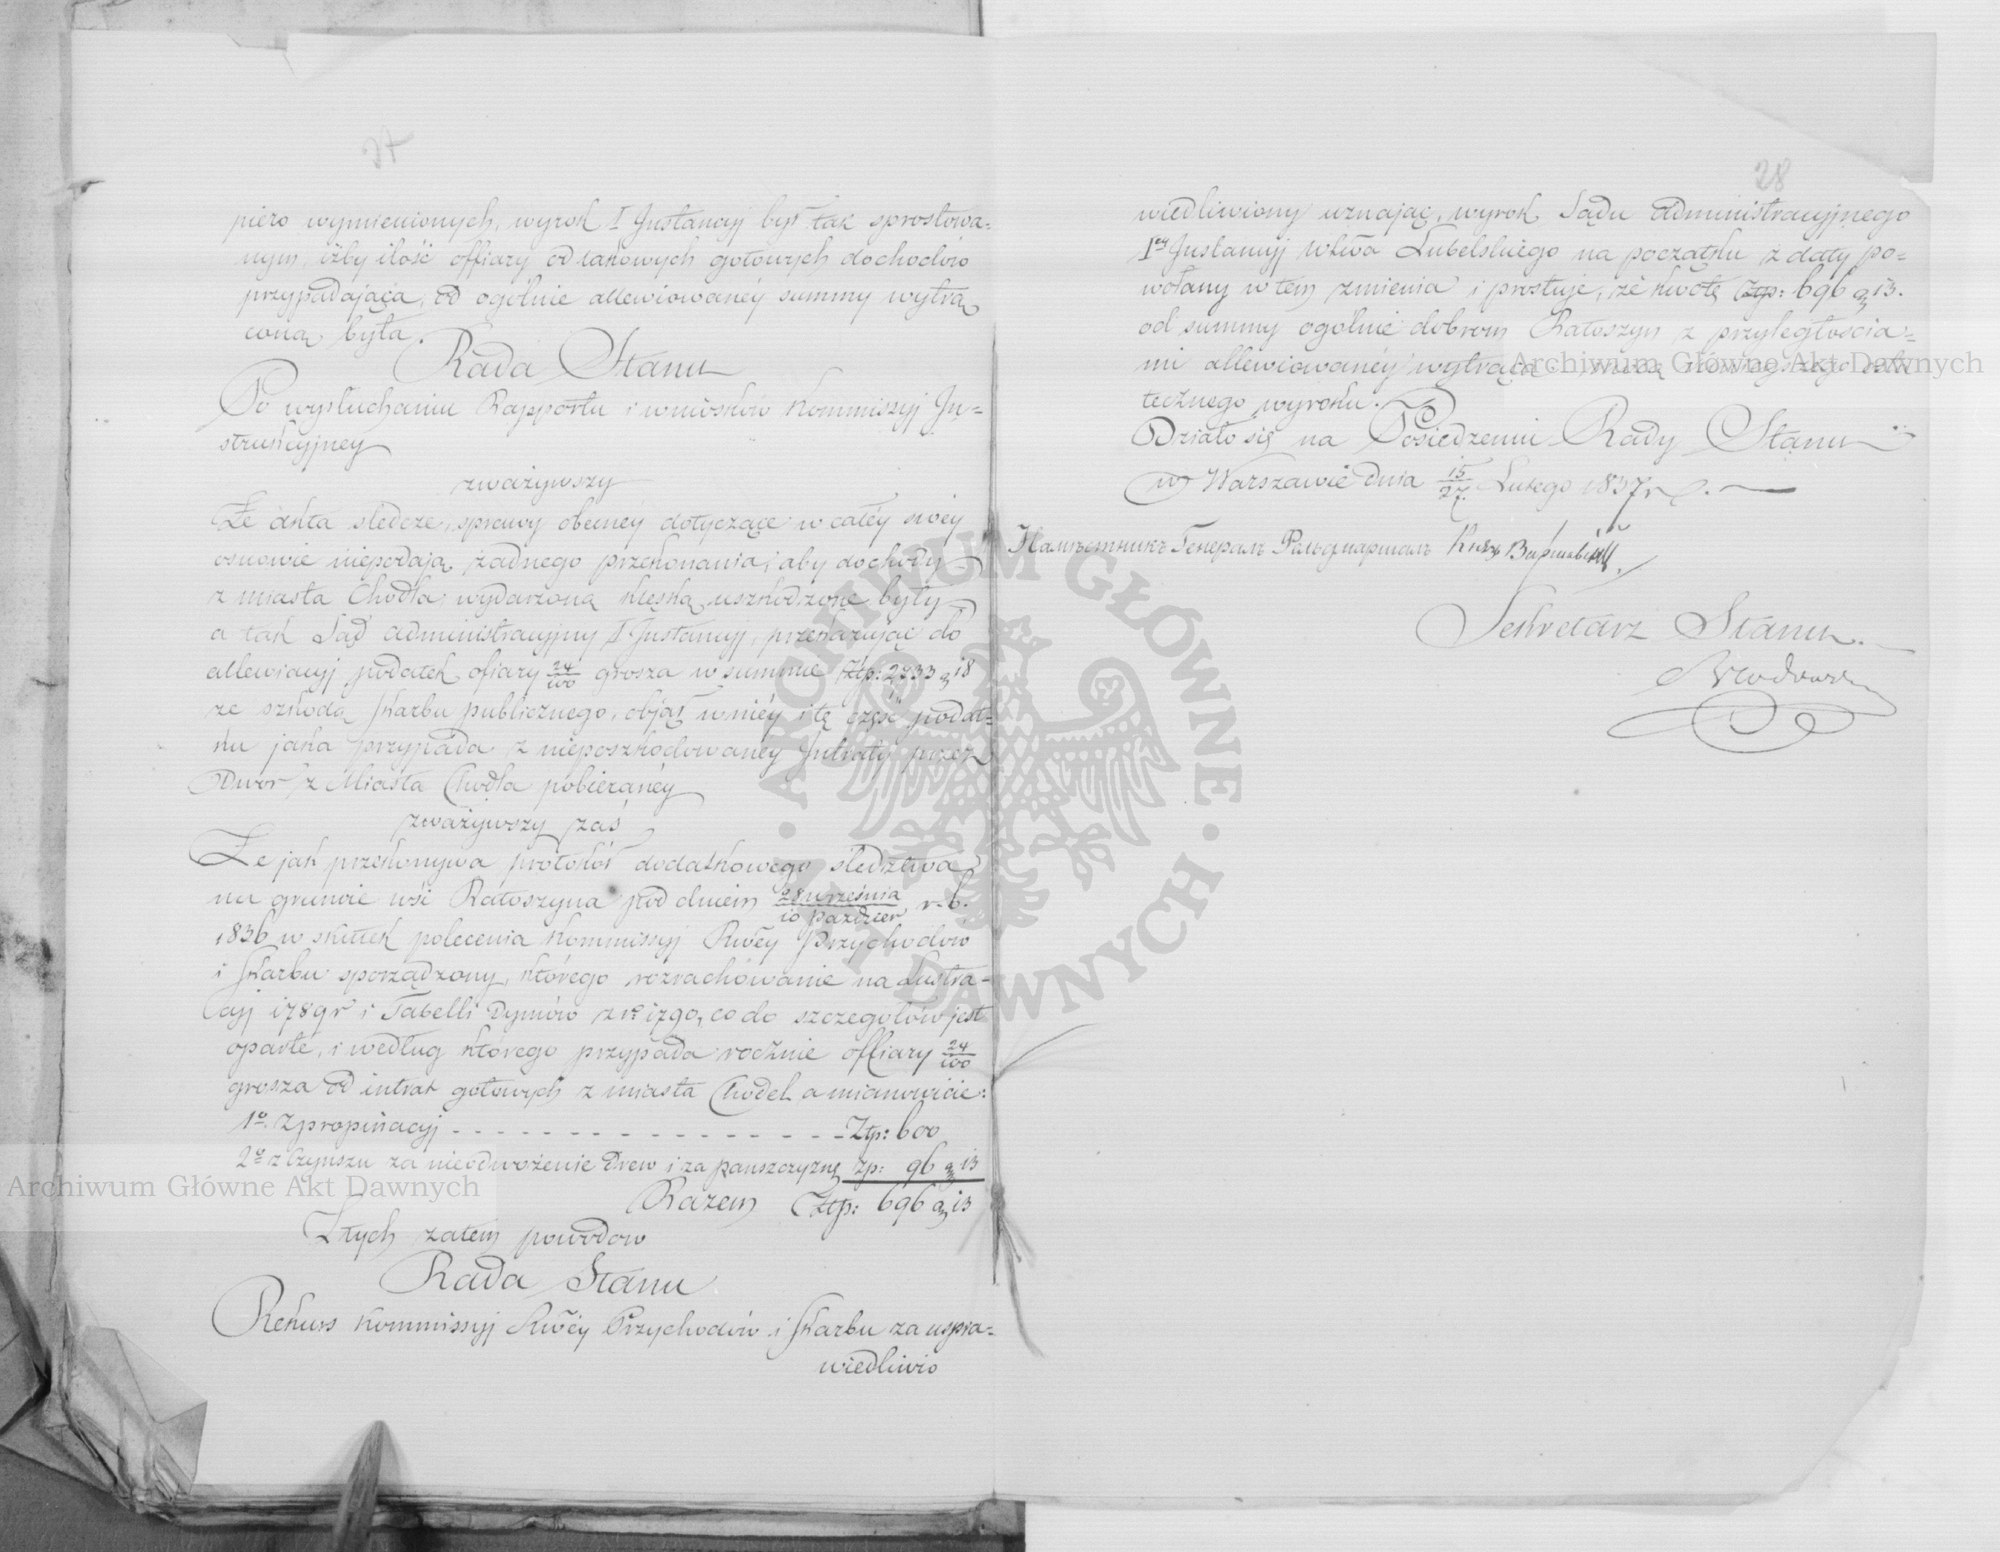 27
piero wymienionych, wyrok I Instancyj był tak sprostowa=
nym, iżby ilość offiary od takowych gotowych dochodów
przypadająca, od ogólnie allewiowanéy summy wytrą
coną była.
Rada Stanu
Po wysłuchaniu Rapportu i wniosków Kommissyj In=
strukcyjney
zważywszy
Że akta śledcze, sprawy obecney dotyczące w całéy swéy
osnowie niepodają żadnego przekonania, aby dochody
z miasta Chodla wydarzoną klęską uszkodzone były
a tak Sąd administracyjny I Instancyj, przekazując do
allewiacyj podatek ofiary 24/100 grosza w summie Złp: 2733 g 18
ze szkodą Skarbu publicznego, objął w niéy i tę część podat=
ku jaka przypada z nieposzkodowanéy Intraty przez
Dwor z Miasta Chodla pobieranéy
zważywszy zaś
Że jak przekonywa protokół dodatkowego śledztwa
na gruncie wsi Ratoszyna pod dniem 28 września/10 paździer. r. b.
1836 w skutek polecenia Kommissyj Rwéy Przychodow
i Skarbu sporządzony, którego rozrachowanie na Lustra=
cyj 1789 r i Tabelli Dymów z r: 1790, co do szczegołów jest
oparte, i według którego przypada rocznie offiary 24/100
grosza od intrat gotowych z miasta Chodel a mianowicie:
1o. Z propinacyj - - - - - - - - - - - - - - - - - - Złp: 600
2o z Czynszu za nieodwożenie Drew i za pańszczyznę zp: 96 g 13
Razem Złp: 696 g 13
Z tych zatem powodow
Rada Stanu
Rekurs Kommissyj Rwéy Przychodów i Skarbu za uspra=
wiedliwio
28
wiedliwiony uznając, wyrok Sądu administracyjnego
Iey Instancyj wdztwa Lubelskiego na początku z daty po=
wołany w tem zmienia i prostuje, że kwotę Złp: 696 g 13.
od summy ogólnie dobrom Ratoszyn z przyległościa=
mi allewiowanéy wytrąca mocą niniejszego osta
tecznego wyroku.
Działo się na Posiedzeniu Rady Stanu
w Warszawie dnia 15/27 Lutego 1837 r.
Намѣстникъ Генералъ Фельдмаршалъ Князь Варшавскій
Sekretarz Stanu.
Archiwum Główne Akt Dawnych
Archiwum Główne Akt Dawnych
· ARCHIWUM GŁÓWNE · AKT DAWNYCH